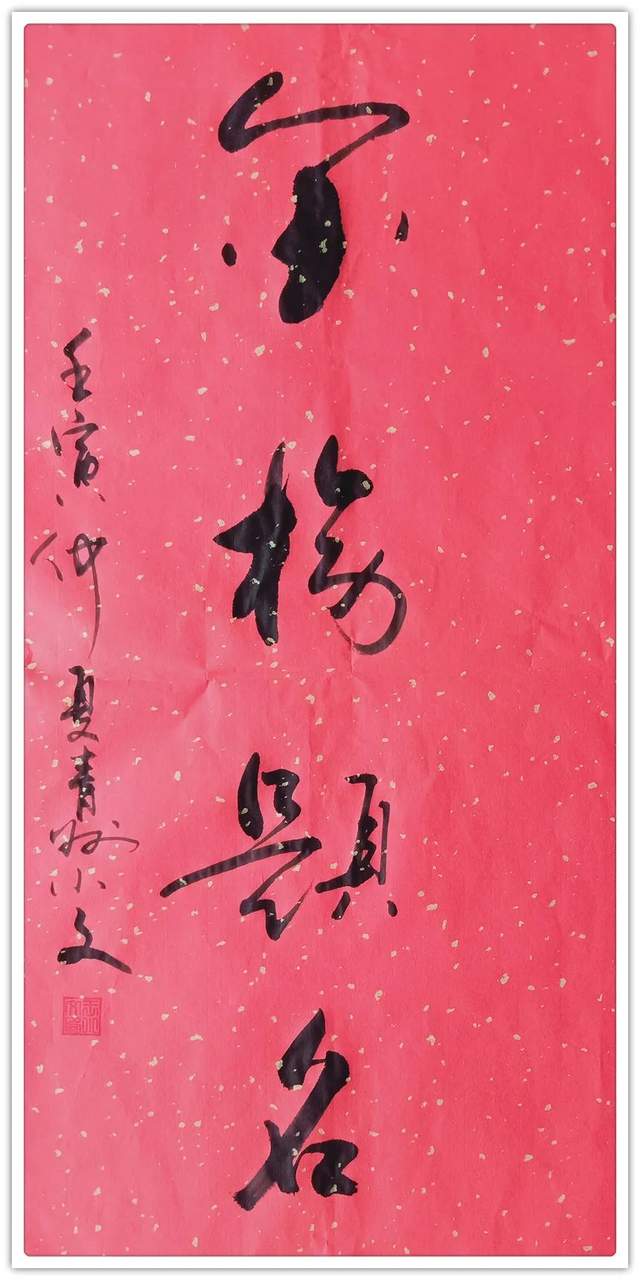 金榜题名
壬寅仲夏青州小文